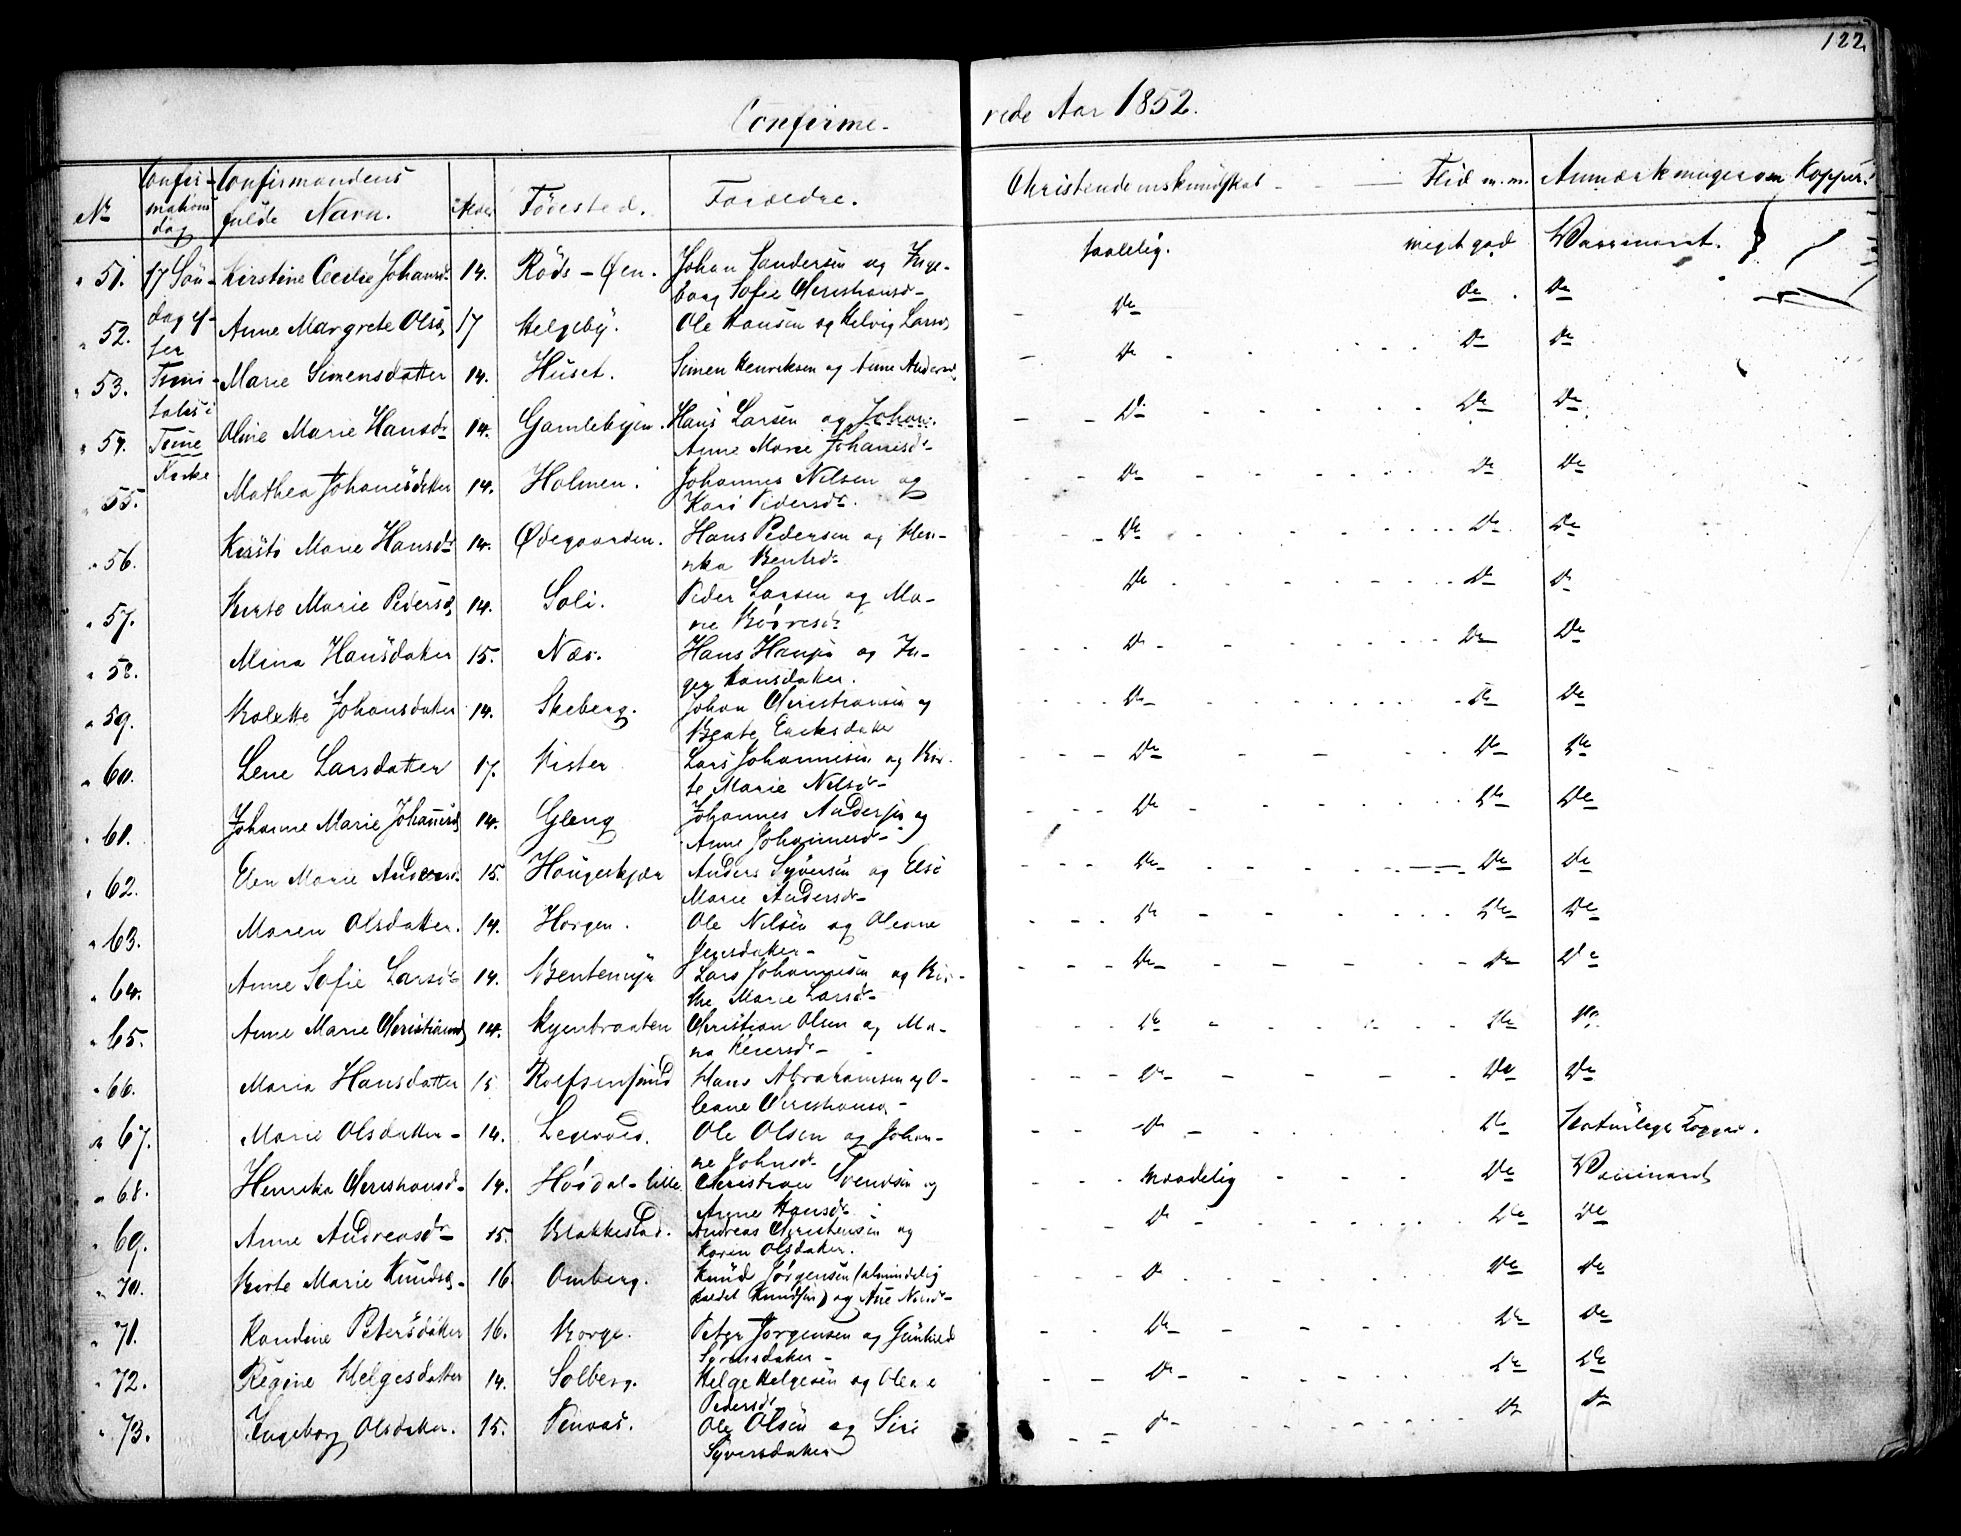 122
Confirme- rede Aar 1852.
No Confir- Confirmandens Alder Fødested. Forældre. Christendomskundskab Flid m. m. Anmærkninger om Kopper.
mations fulde Navn.
dag
" 51. 17 Søn- Kirstine Cecilie Johansd. 14. Röds-Øen. Johan Sandersen og Inge- taalelig. meget god Vaccineret.
borg Sofie Christiansd-
dag ef-
" 52. Anne Margrete Olsd. 17 Helgeby. Ole Hansen og Helvig Larsd. Do Do Do
ter
" 53. Trini- Marie Simensdatter 14. Huset. Simen Henriksen og Anne Andersd. Do Do Do
tatis i
" 54. Tune Oline Marie Hansd- 14. Gamlebyen. Hans Larsen og Johan. Do Do Do
Anne Marie Johanesd-
Kirke
" 55. Mathea Johanesdatter 14. Holmen. Johannes Nilsen og Do Do Do
Kari Pedersd-
" 56. Kirsti Marie Hansd- 14. Ødegaarden. Hans Pedersen og Hen- Do Do Do
rika Bentsd-
" 57. Kirste Marie Pedersd. 14. Soli. Peder Larsen og Ma- Do Do Do
rie
" 58. Mina Hansdatter 15. Næs. Hans Hansen og In- Do Do Do
ger Hansdatter.
" 59. Kolette Johansdatter 14. Skeberg. Johan Christiansen og Do Do Do
Beate Eriksdatter
" 60. Lene Larsdatter 17. Kister Lars Johannesen og Kir- Do Do Do
te Marie Nilsd-
" 61. Johanne Marie Johannesd. 14. Gleng Johannes Andersen og Do Do Do
Anne Johannesd-
" 62. Elen Marie Andersd. 15. Haugerkjær Anders Syversen og Else Do Do Do
Marie Andersd-
" 63. Maren Olsdatter. 14. Horgen. Ole Nilsen og Oleane Do Do Do
Jensdatter-
" 64. Anne Sofie Larsd- 14. Bentemyr Lars Johannesen og Kir- Do Do Do
stie Marie Larsd-
" 65. Anne Marie Christiansd. 14. Christian Olsen og Ma- Do Do Do
ria
" 66. Maria Hansdatter 15 Rolfsensund Hans Abrahamsen og O- Do Do Do
leane Christiansd-
" 67. Marie Olsdatter- 14. Ole Olsen og Johan- Do Do Naturlige Kopper.
ne Johnsd-
" 68. Henrika Christiansd- 14. Høidal-lille. Christian Svendsen og maadelig Do Vaccineret
Anne Hansd-
" 69. Anne Andreasd- 15. Blakkestad. Andreas Christensen og Do Do Do
Karen Olsdatter.
" 70. Kirte Marie Knudsd- 16. Omberg. Knud Jørgensen (almindelig Do Do Do
kaldet Knudsen) og Ane Nilsd-
" 71. Kandine Petersdatter 16. Borge. Peter Jørgensen og Gunhild Do Do Do
Syversdatter-
" 72. Regine Helgesdatter 14. Solberg. Helge Helgesen og Olea e Do Do Do
Pedersd-
" 73. Ingeborg Olsdatter. 15. Ole Olsen og Siri Do Do Do
Syversdatter